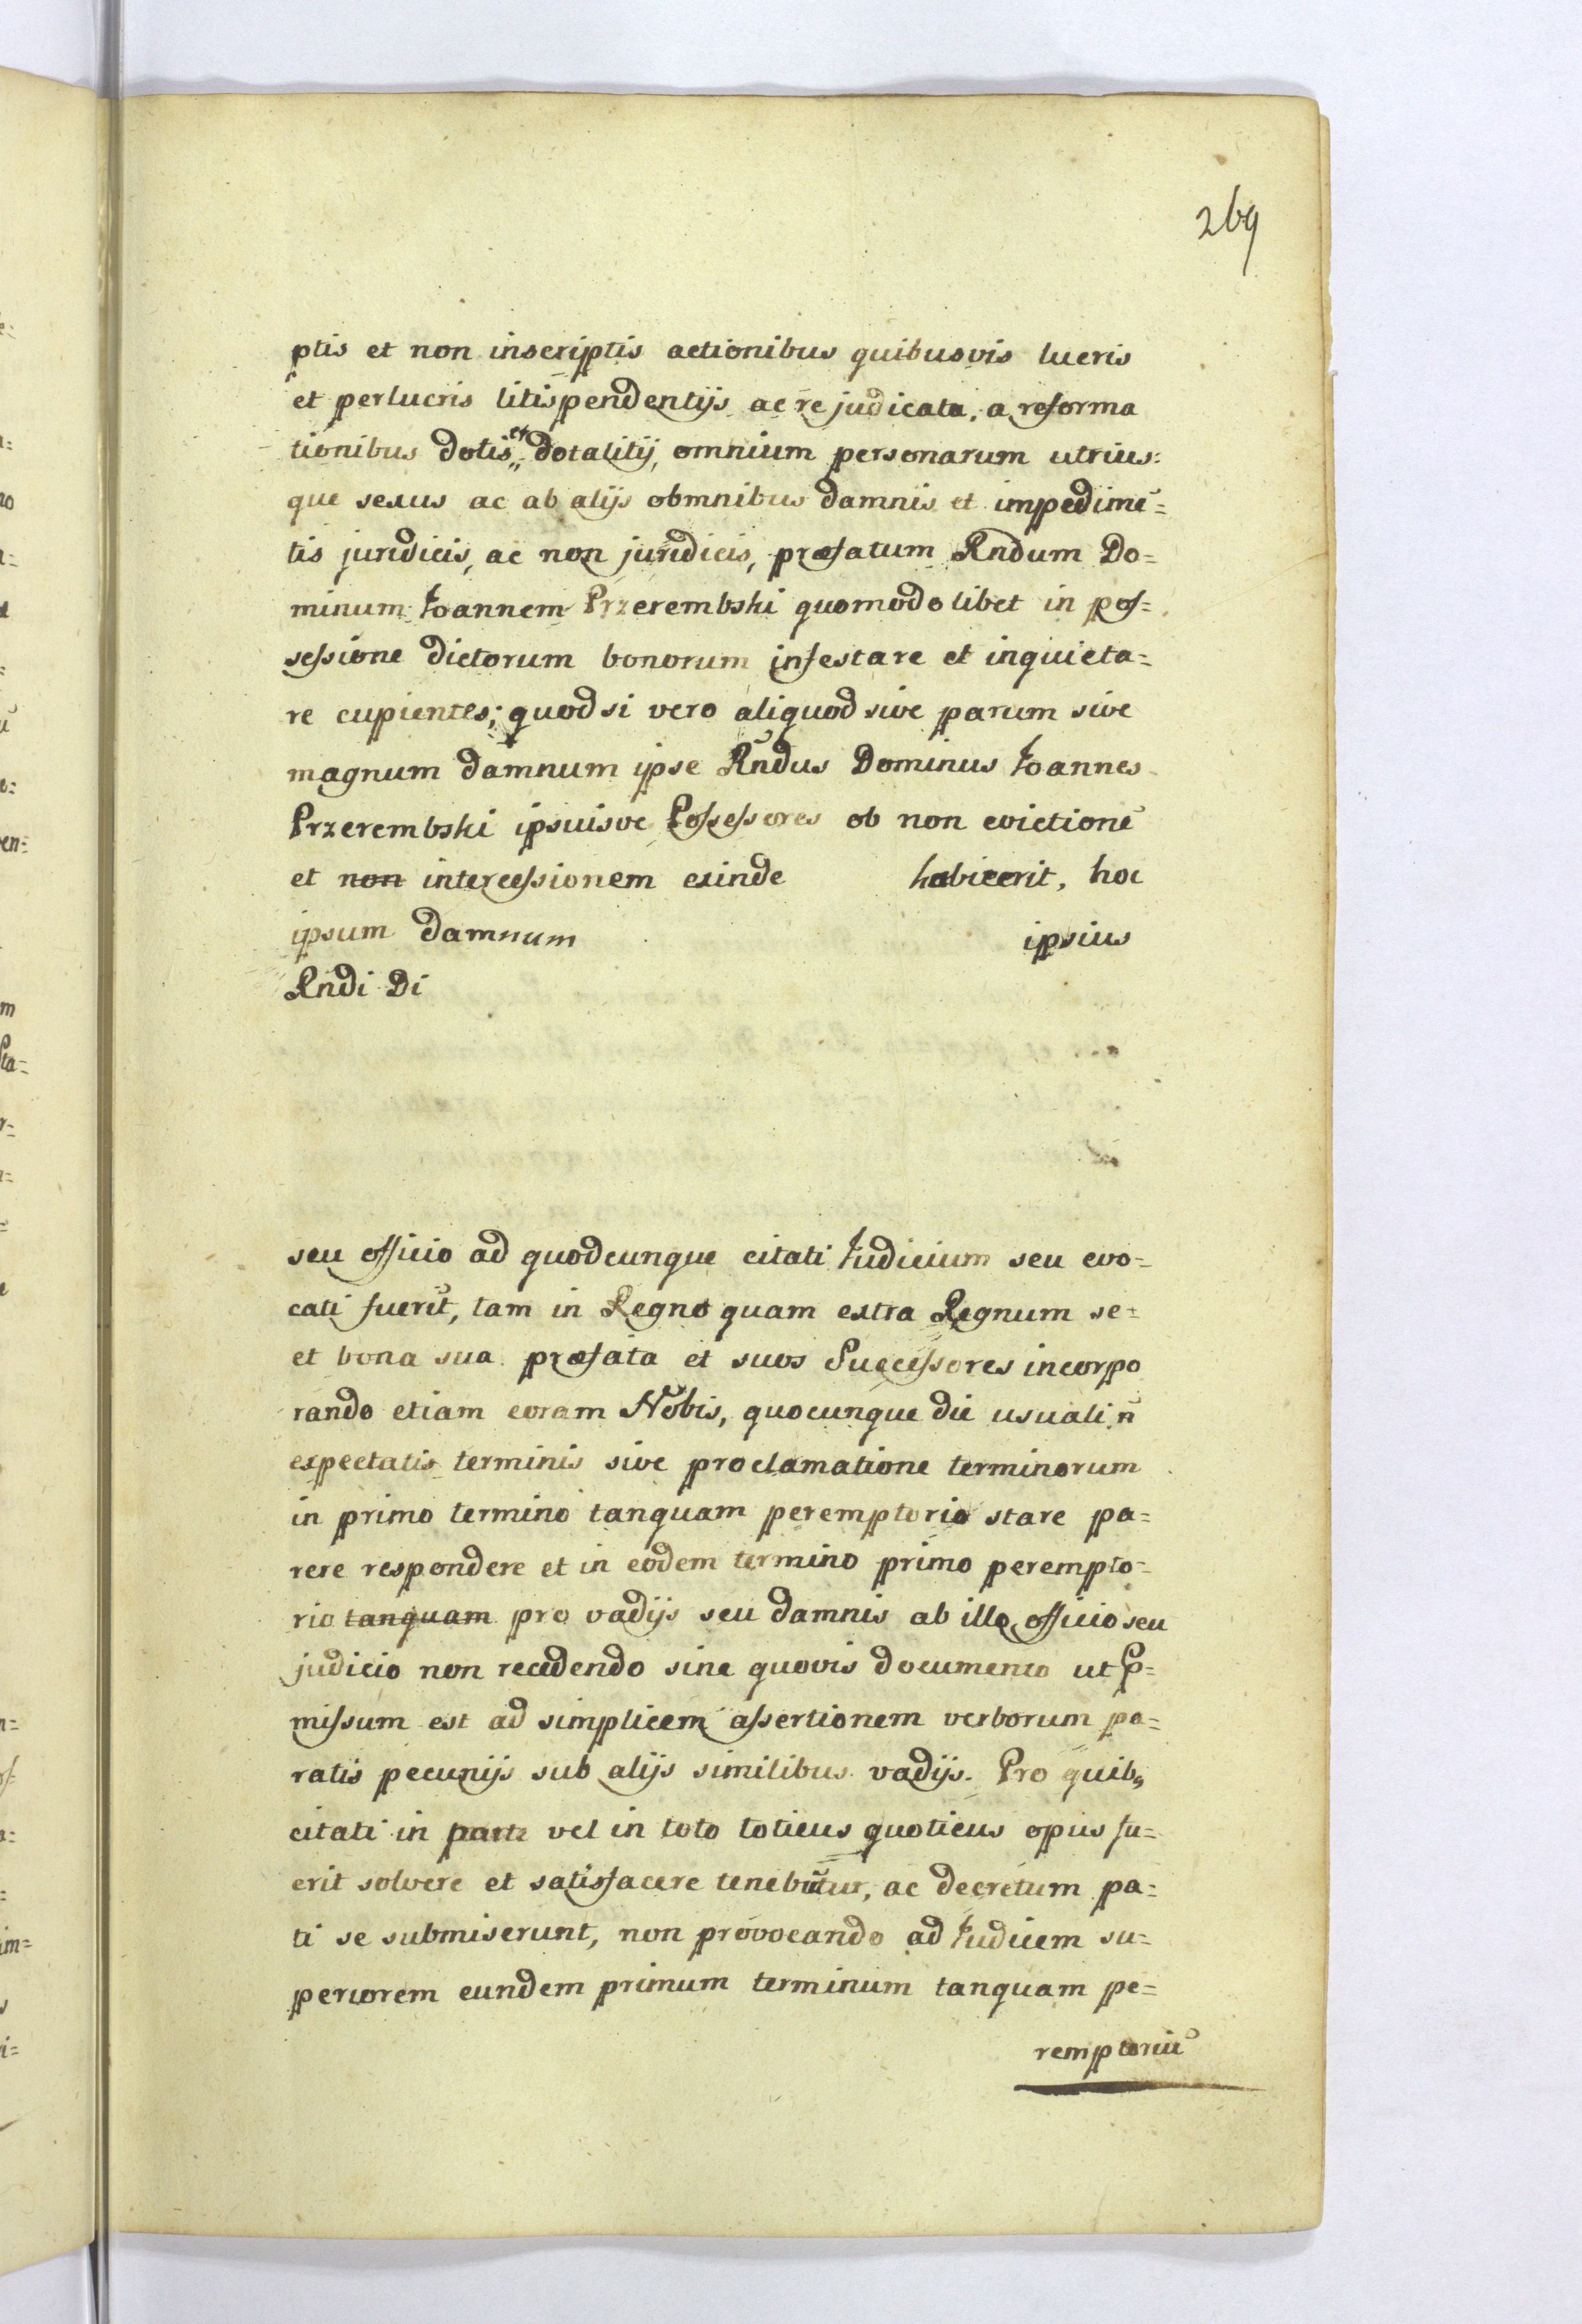 269
ptis et non inscriptis actionibus quibusvis lucris
et perlucris litispendentijs ac re judicata, a reforma
tionibus dotis et dotalitij, omnium personarum utrius:
que sexus ac ab alijs obmnibus damnis et impedime̅=
tis juridicis, ac non juridicis, præfatum Rndum Do=
minum Joannem Przerembski quomodolibet in pos=
sessione dictorum bonorum infestare et inquieta=
re cupientes; quod si vero aliquod sive parum sive
magnum damnum ipse Rndus Dominus Joannes
Przerembski ipsuisve Possessores ob non evictione̅
et non intercessionem exinde habuerit, hoc
ipsum damnum ipsius
Rndi Di
seu officio ad quodcunque citati Judicium seu evo=
cati fueru̅t, tam in Regno quam extra Regnum se=
et bona sua præfata et suos Successores incorpo
rando etiam coram Nobis, quocunque die usuali n̅
expectatis terminis sive proclamatione terminorum
in primo termino tanquam peremptorio stare pa=
rere respondere et in eodem termino primo perempto=
rio tanquam pro vadijs seu damnis ab illo officio seu
judicio non recedendo sine quovis documento ut p=
missum est ad simplicem assertionem verborum pa=
ratis pecunijs sub alijs similibus vadijs. Pro quib9
citati in parte vel in toto toticus quoticus opus fu=
erit solvere et satisfacere tenebu̅tur, ac decretum pa=
ti se submiserunt, non provocando ad Judicem su=
periorem eundem primum terminum tanquam pe=
remptoriu̅